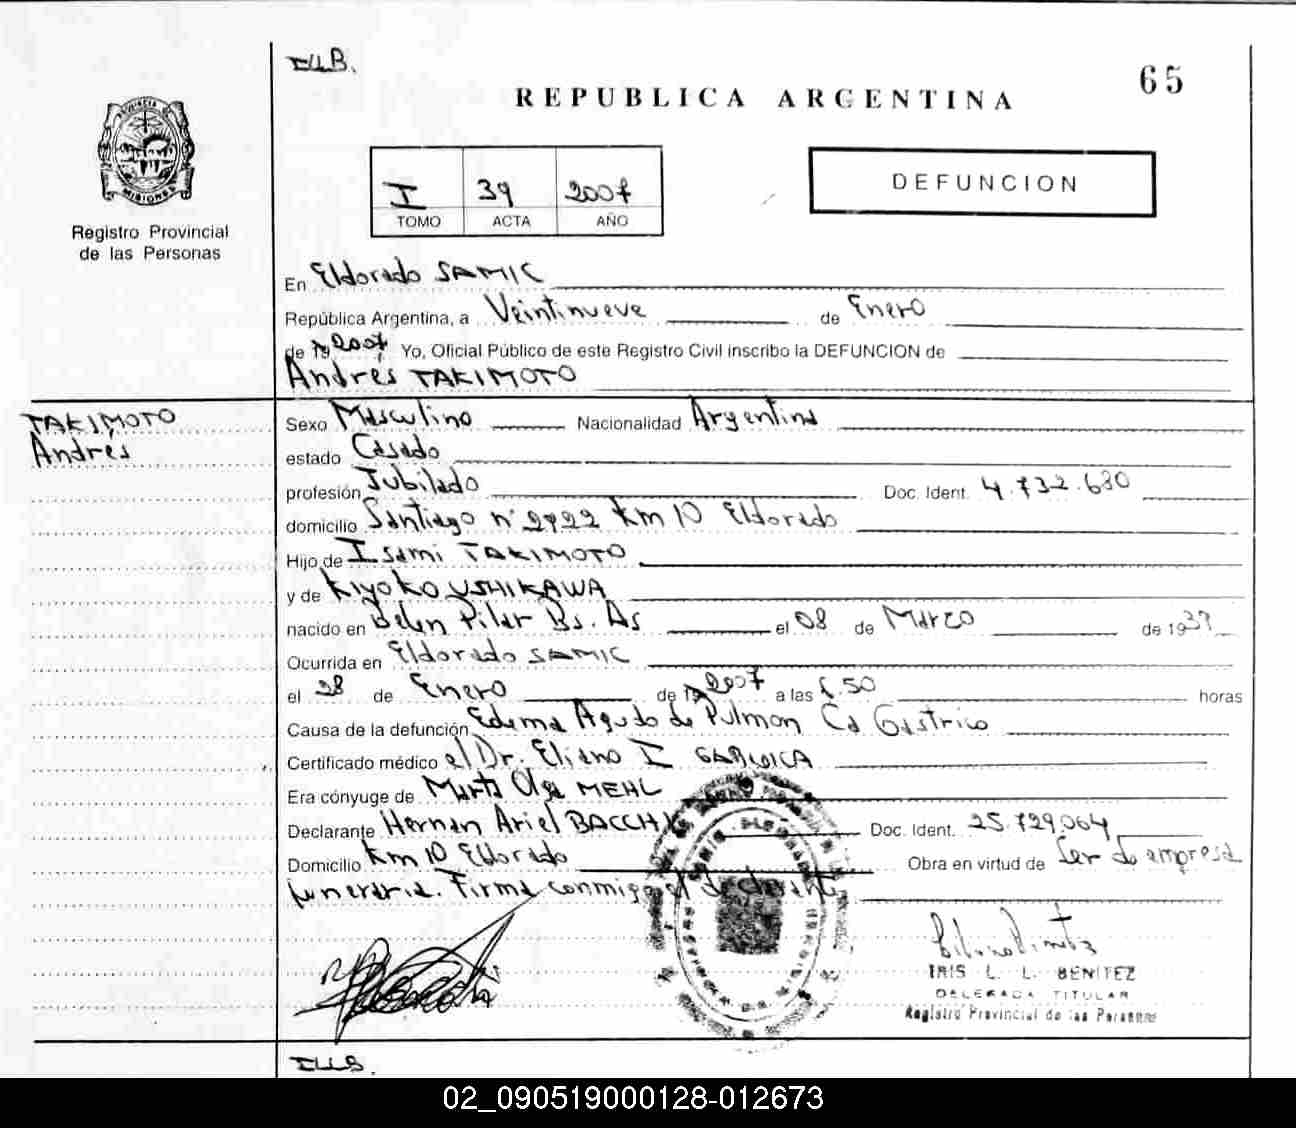 I.L.B.
65
REPUBLICA ARGENTINA
PROVINCIA DE
MISIONES
Registro Provincial
de las Personas
I 39 2007
TOMO ACTA AÑO
DEFUNCION
En Eldorado SAMIC
República Argentina, a Veintinueve de Enero
de 19 2007 Yo, Oficial Público de este Registro Civil inscribo la DEFUNCION de
Andrés TAKIMOTO
TAKIMOTO
Andrés
Sexo Masculino Nacionalidad Argentina
estado Casado
profesión Jubilado Doc. Ident. 4.732.680
domicilio Santiago n° 2922 Km 10 Eldorado
Hijo de Isami TAKIMOTO
y de Kiyoko USHIKAWA
nacido en Belen Pilar Bs. As el 08 de Marzo de 1937
Ocurrida en Eldorado SAMIC
el 28 de Enero de 19 2007 a las 6.50 horas
Causa de la defunción Edema Agudo de Pulmon Ca Gastrico
Certificado médico el Dr. Eliano I
Era cónyuge de Marta Olga MEHL
Declarante Hernan Ariel Doc. Ident. 25.729.064
Domicilio Km 10 Eldorado Obra en virtud de Ser de empresa
funeraria. Firma conmigo el declarante
IRIS L. L. BENITEZ
DELEGADA TITULAR
Registro Provincial de las Personas
I.L.L.B.
02_090519000128-012673